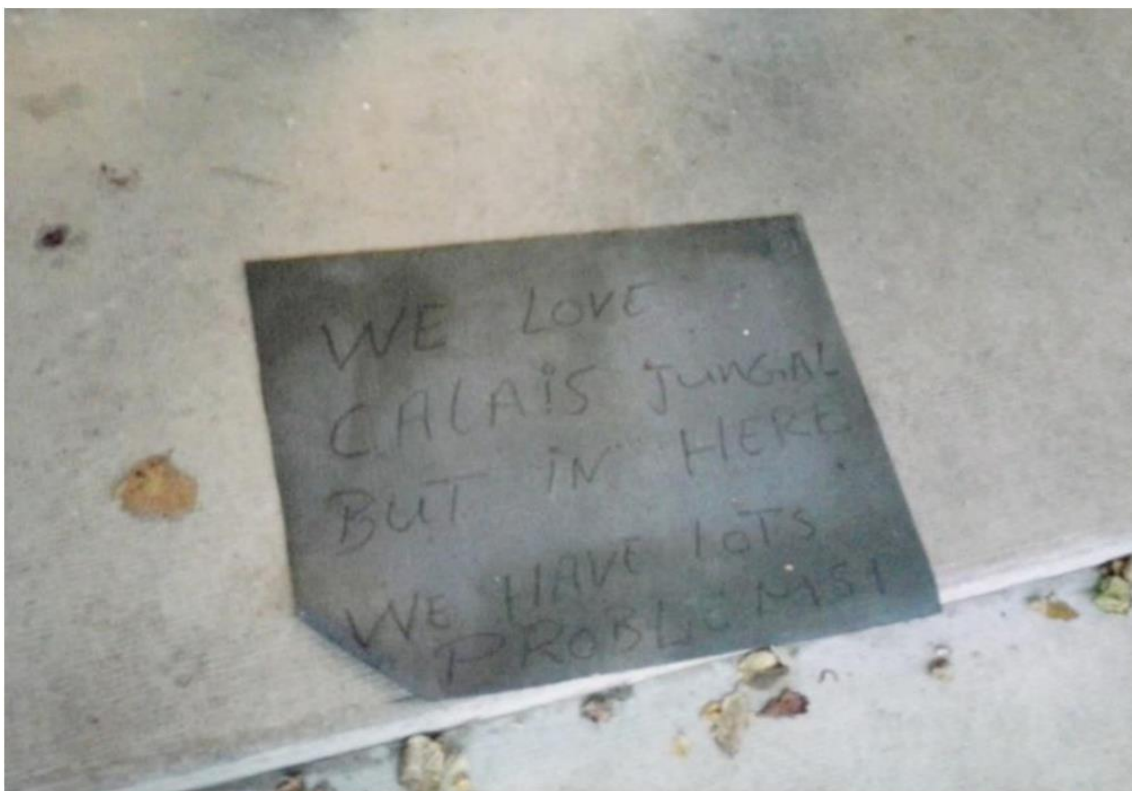 WE LOVE
CALAIS JUNGAL
BUT iN HERE
WE HAVE LOTS
PROBLEMS!